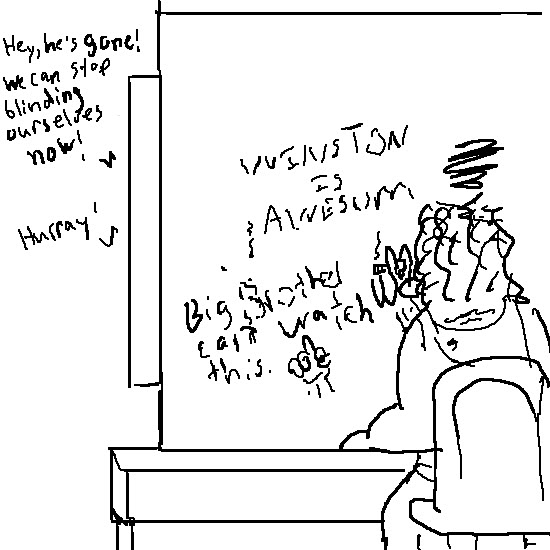 Hey, he's gone!
we can stop
blinding
ourselves
now!
Hurray!
WINSTON
IS
AWESUM
Big Brother
can't watch
this.